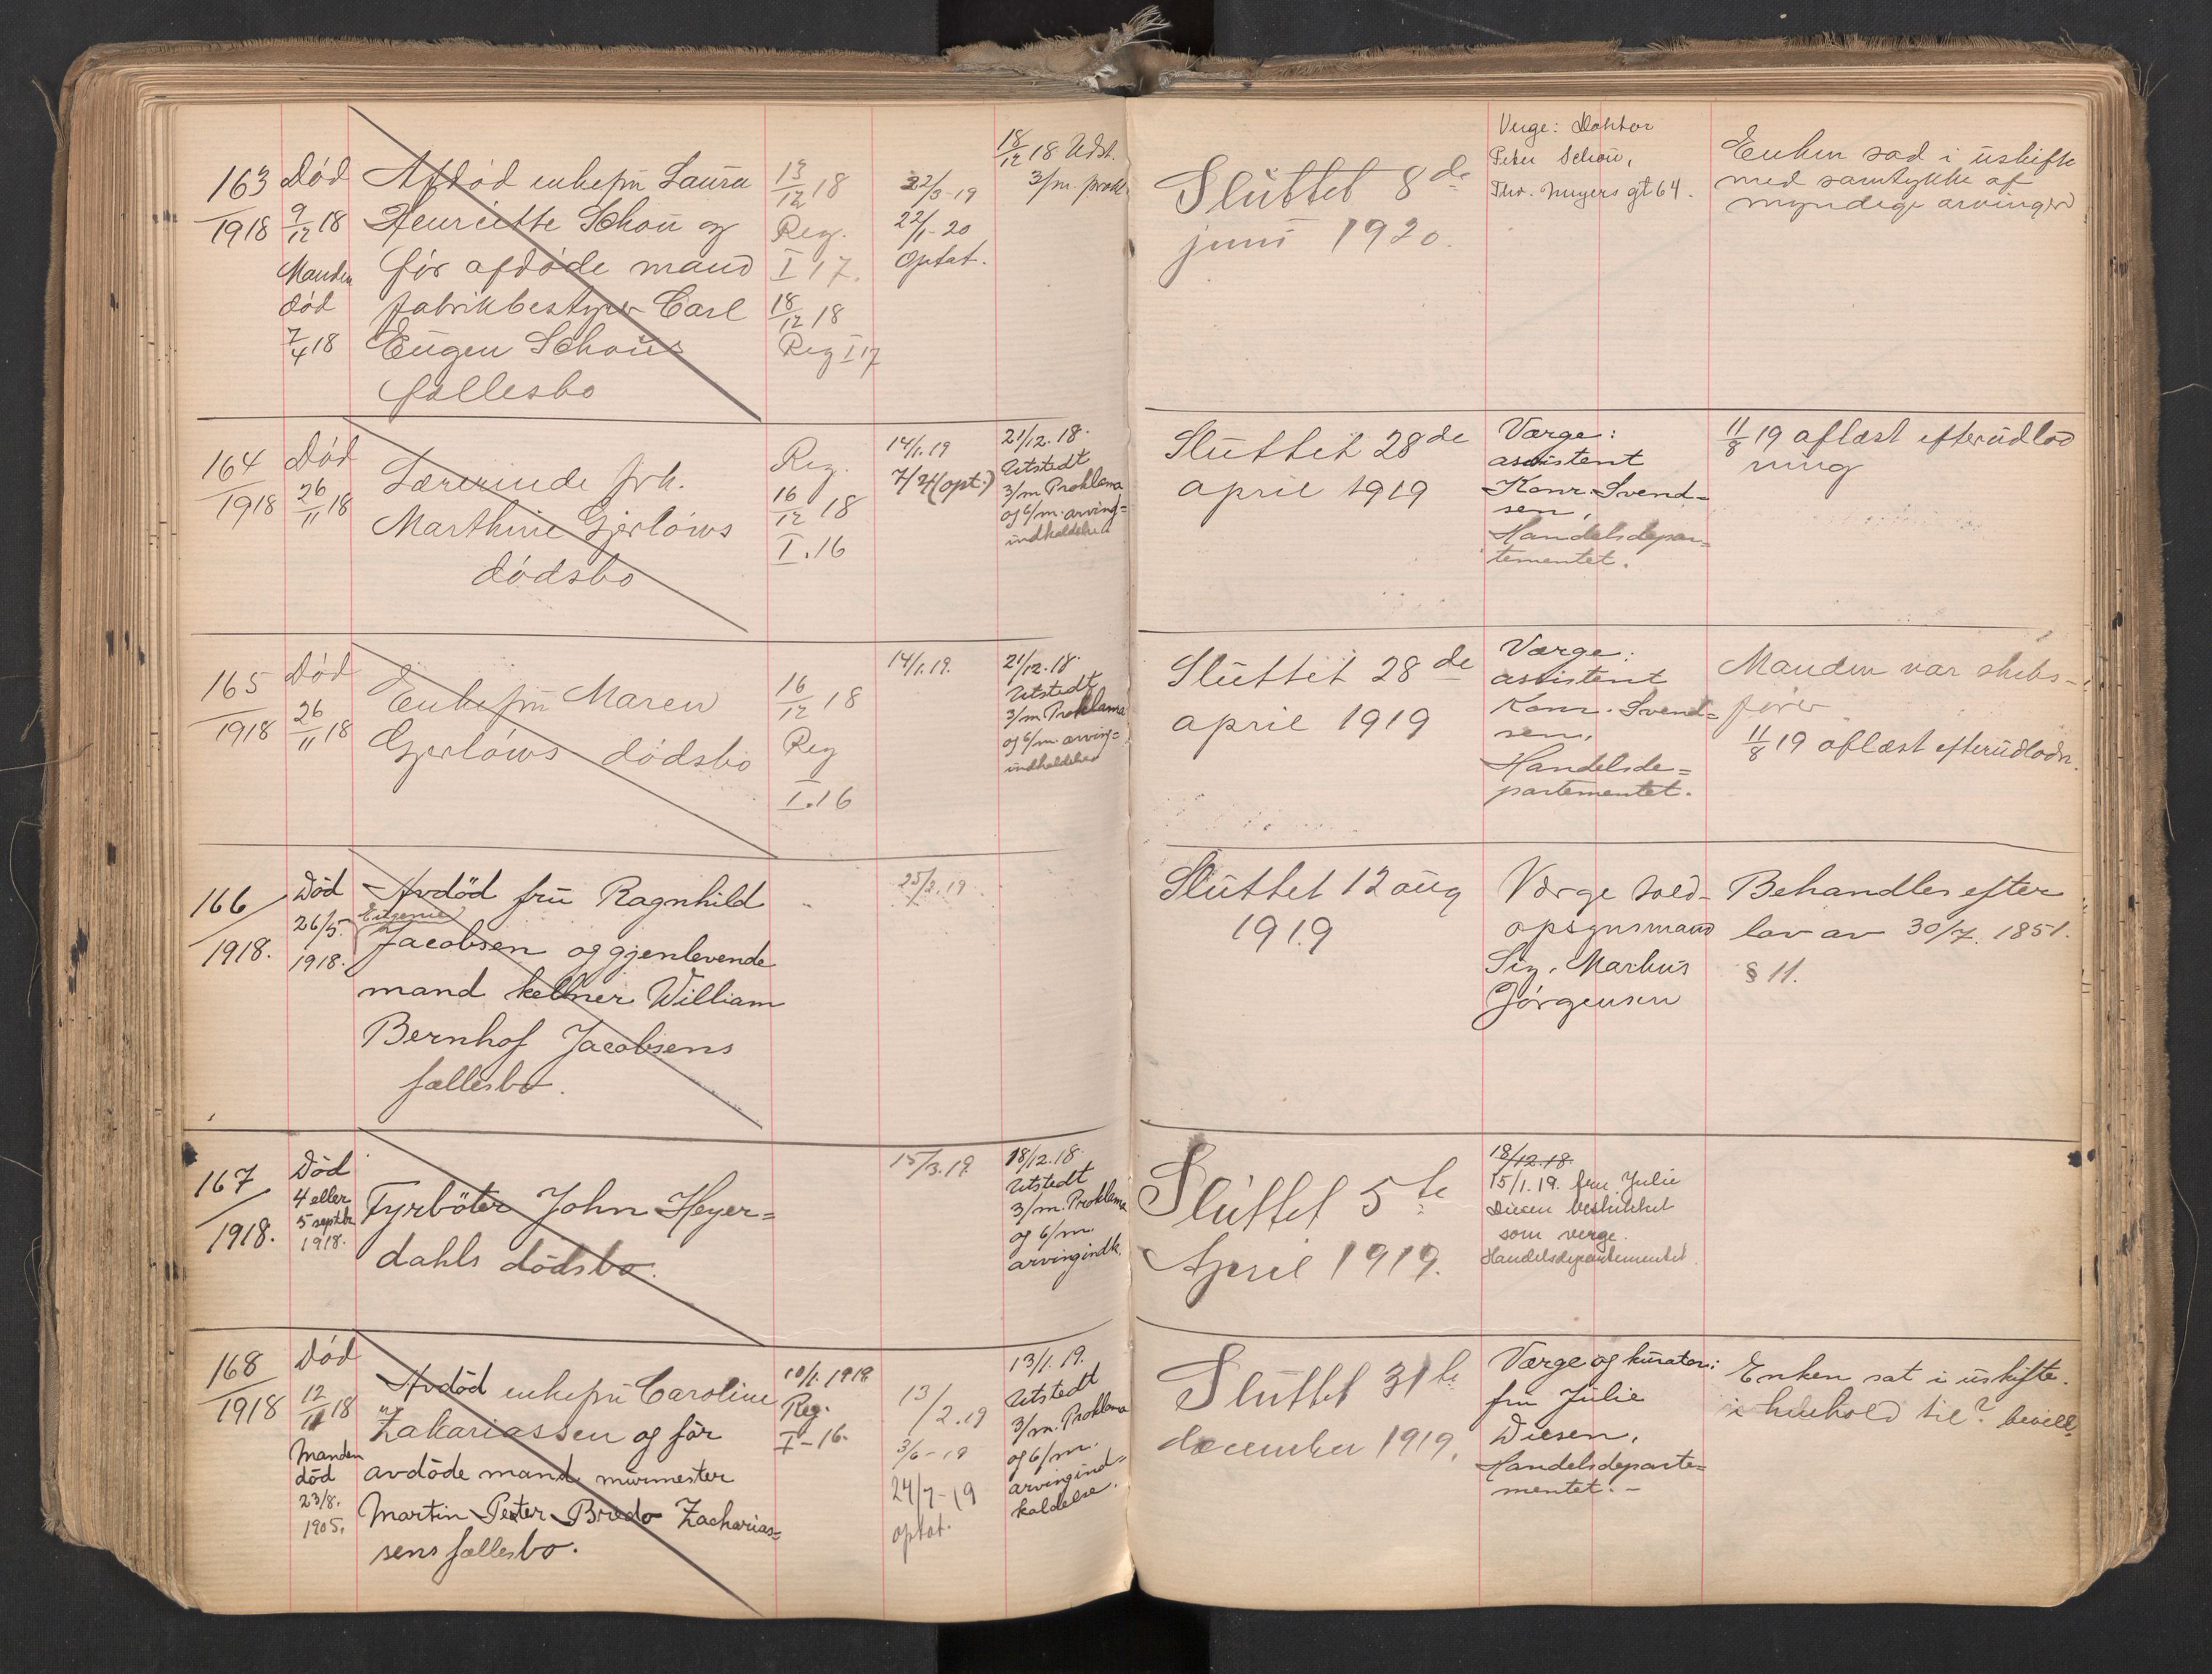 163
1918
Død
9/12 18
Manden
død
7/4 18
Afdød enkefru Laura
Henriette Schou og
før afdøde mand
fabrikbestyrer Carl
Eugen Schous
fællesbo
13/12 18
Reg.
I 17.
18/12 18
Reg I 17
22/3-19
22/1-20
Optat.
18/12 18 Udst.
3/m. prok.
Sluttet 8de
juni 1920.
Verge: Doktor
Peter Schou,
Thv. Meyers gt 64.
Enken sad i uskifte
med samtykke af
myndige arvinger
164
1918
Død
26/11 18
Lærerinde frk.
Marthine Gjerløws
dødsbo
Reg.
16/12 18
I.16
14/1.19
7/4 (opt.)
21/12.18.
Utstedt
3/m Proklama
og 6/m. arving=
indkaldelse
Sluttet 28de
april 1919
Værge:
assistent
Konr. Svend=
sen,
Handelsdepar=
tementet.
11/8 19 aflæst efterudlod
ning
165
1918
Død
26/11 18
Enkefru Maren
Gjerløws dødsbo
16/12 18
Reg
I.16
14/1.19.
21/12.18.
Utstedt
3/m Proklama
og 6/m. arving=
indkaldelse
Sluttet 28de
april 1919
Værge:
assistent
Konr. Svend=
sen,
Handelsde=
partementet.
Manden var skibs-
fører
11/8 19 aflæst efterudlodn.
166
1918.
Død
26/5.
1918.
Avdød fru Ragnhild
Eugenie
Jacobsen og gjenlevende
mand kellner William
Bernhof Jacobsens
fællesbo.
25/2.19
Sluttet 12 aug
1919
Værge told-
opsynsmand
Sig. Markus
Jørgensen
Behandles efter
lov av 30/7. 1851.
§ 11.
167
1918.
Død
4 eller
5 septbr
1918.
Fyrbøter John Heyer=
dahls dødsbo.
15/3.19.
18/12.18.
Utstedt
3/m. Proklama
og 6/m.
arvingindk.
Sluttet 5te
April 1919.
18/12.18.
15/1.19. fru Julie
Diesen beskikket
som verge.
Handelsdepartementet.
168
1918
Død
12/11 18
Manden
død
23/8.
1905.
Avdød enkefru Caroline
Zakariassen og før
avdøde mand murmester
Martin Peter Bredo Zacharias=
sens fællesbo.
10/1.1919
Reg.
I-16.
13/2.19
3/6-19
24/7-19
optat.
13/1.19.
Utstedt
3/m. Proklama
og 6/m.
arvingind=
kaldelse.
Sluttet 31te
december 1919.
Værge og kurator:
fru Julie
Diesen,
Handelsdeparte=
mentet.-
Enken sat i uskifte.
i henhold til? bevill.